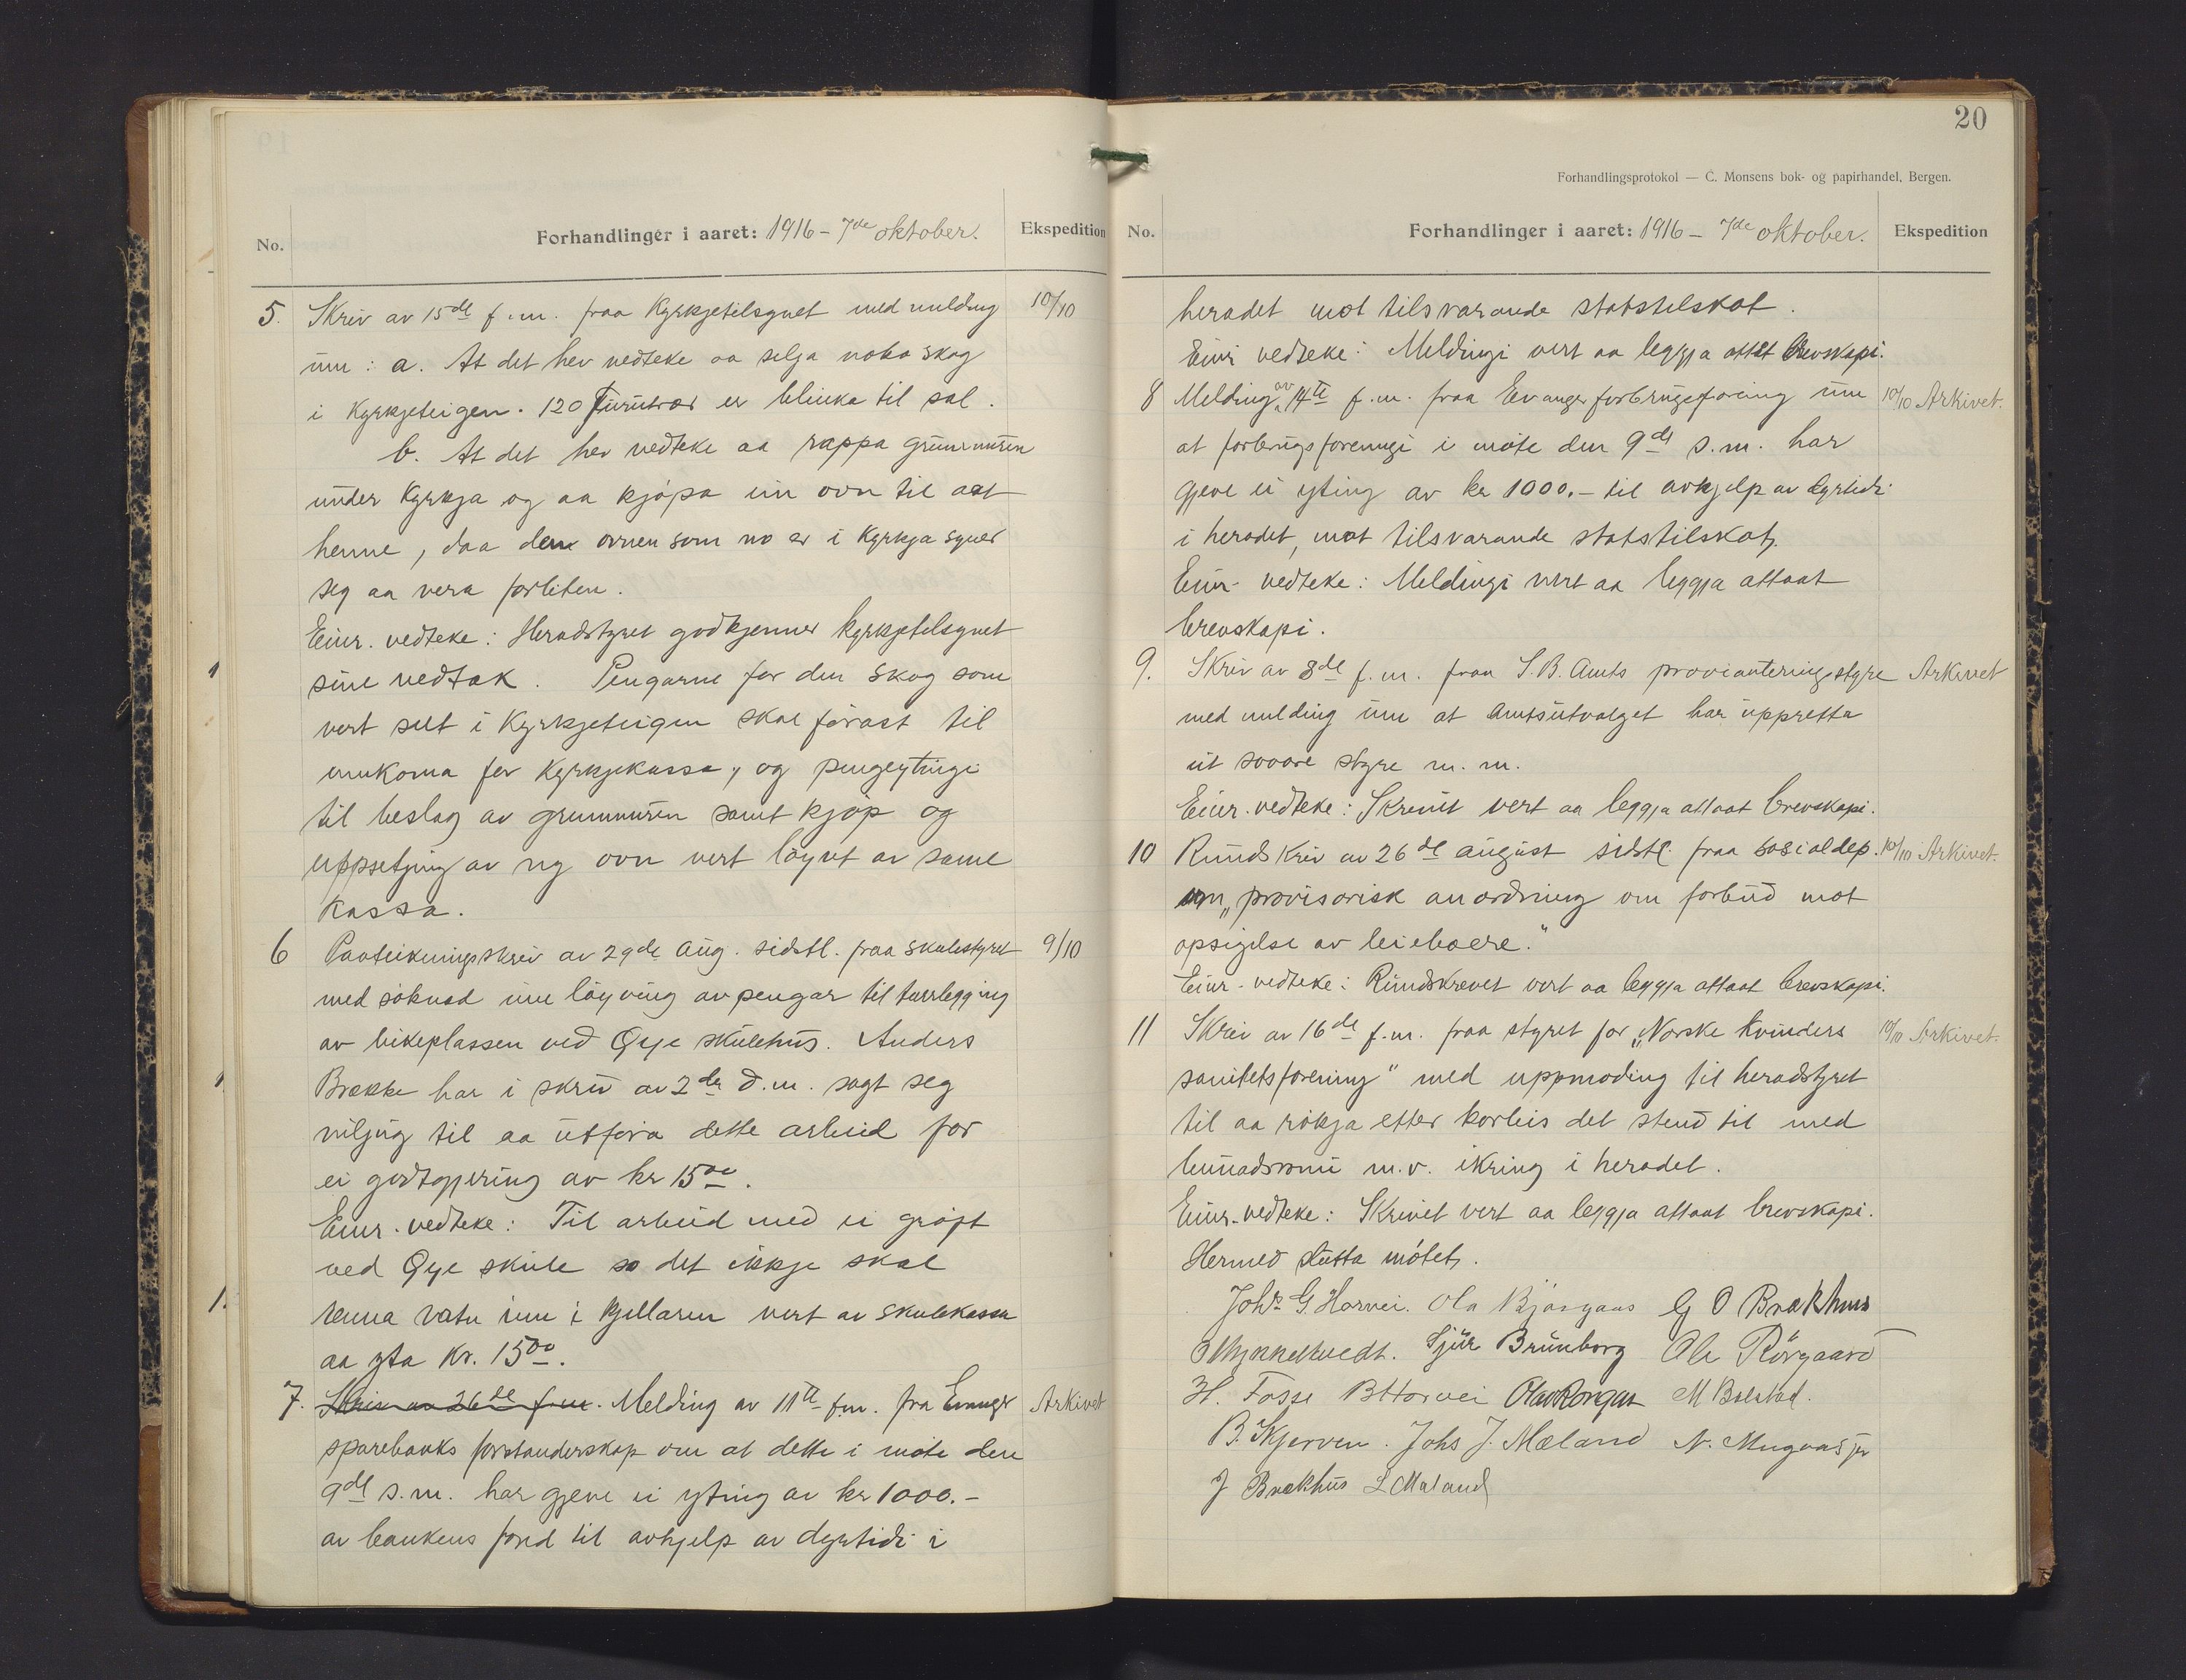 No. Forhandlinger i aaret: 1916 – 7de oktober. Ekspedition
5. Skriv av 15de f.m. fraa Kyrkjetilsynet med melding 10/10
um: a. At det hev vedteke aa selja noko skog
i Kyrkjeteigen. 120 furutræ er blinka til sal.
b. At det hev vedteke aa rappa grunnmuren
under Kyrkja og aa kjøpa ein ovn til aat
henne, daa den ovnen som no er i Kyrkja syner
seg aa vera forliten.
Einr. vedteke: Heradstyret godkjenner kyrkjetilsynet
sine vedtak. Pengarne for den skog som
vert selt i Kyrkjeteigen skal førast til
innkoma for Kyrkjekassa, og pengeytingi
til beslag av grunnmuren samt kjøp og
uppsetjing av ny ovn vert løyvt av same
kassa.
6 Paateikningsskriv av 29de aug. sidstl. fraa skulestyret 9/10
med søknad um løyving av pengar til turrlegging
av leikeplassen ved Øye skulehus. Anders
Brække har i skriv av 2dr d.m. sagt seg
viljug til aa utføra dette arbeid for
ei godtgjering av kr 15.00.
Einr. vedteke: Til arbeid med ei grøft
ved Øye skule so det ikkje skal
renna vatn inn i kjellaren vert av skulekassa
aa yta Kr. 15.00.
7. Skriv av 26de f.m. Melding av 11te f.m. fra Evanger Arkivet
sparebanks forstanderskap om at dette i møte den
9de s.m. har gjeve ei yting av kr 1000.–
av bankens fond til avhjelp av dyrtidi i
20
Forhandlingsprotokol — C. Monsens bok- og papirhandel, Bergen.
No. Forhandlinger i aaret: 1916 – 7de oktober. Ekspedition
heradet mot tilsvarande statstilskot.
Einr. vedteke: Meldingi vert aa leggja attåt brevskapi.
8 Melding av 14te f.m. fraa Evanger forbrugsforening um 10/10 Arkivet.
at forbrugsforeningi i møte den 9de s.m. har
gjeve ei yting av kr 1000.– til avhjelp av dyrtidi
i heradet, mot tilsvarande statstilskot.
Einr. vedteke: Meldingi vert aa leggja attaat
brevskapi.
9. Skriv av 8de f.m. fraa S. B. Amts provianteringsstyre Arkivet
med melding um at amtsutvalget har uppretta
eit sovore styre m.m.
Einr. vedteke: Skrivet vert aa leggja attaat brevskapi.
10 Rundskriv av 26de august sidstl. fraa sosialdep. 10/10 Arkivet.
um „provisorisk anordning om forbud mot
opsigelse av leieboere."
Einr. vedteke: Rundskrevet vert aa leggja attaat brevskapi.
11 Skriv av 16de f.m. fraa styret for „Norske Kvinders 10/10 Arkivet.
sanitetsforening" med uppmoding til heradstyret
til aa røkja etter korleis det stend til med
bunadsromi m.v. ikring i heradet.
Einr. vedteke: Skrivet vert aa leggja attaat brevskapi.
Hermed slutta møtet.
Johs G. Horvei. Ola Bjørgaas G O Brækhus
Sjur Brunborg Ole Rørgaard
H. Fosse B Horvei M Bolstad.
B. Kjerven. Johs J. Mæland N. Mugaas jr
J Brækhus L Mæland